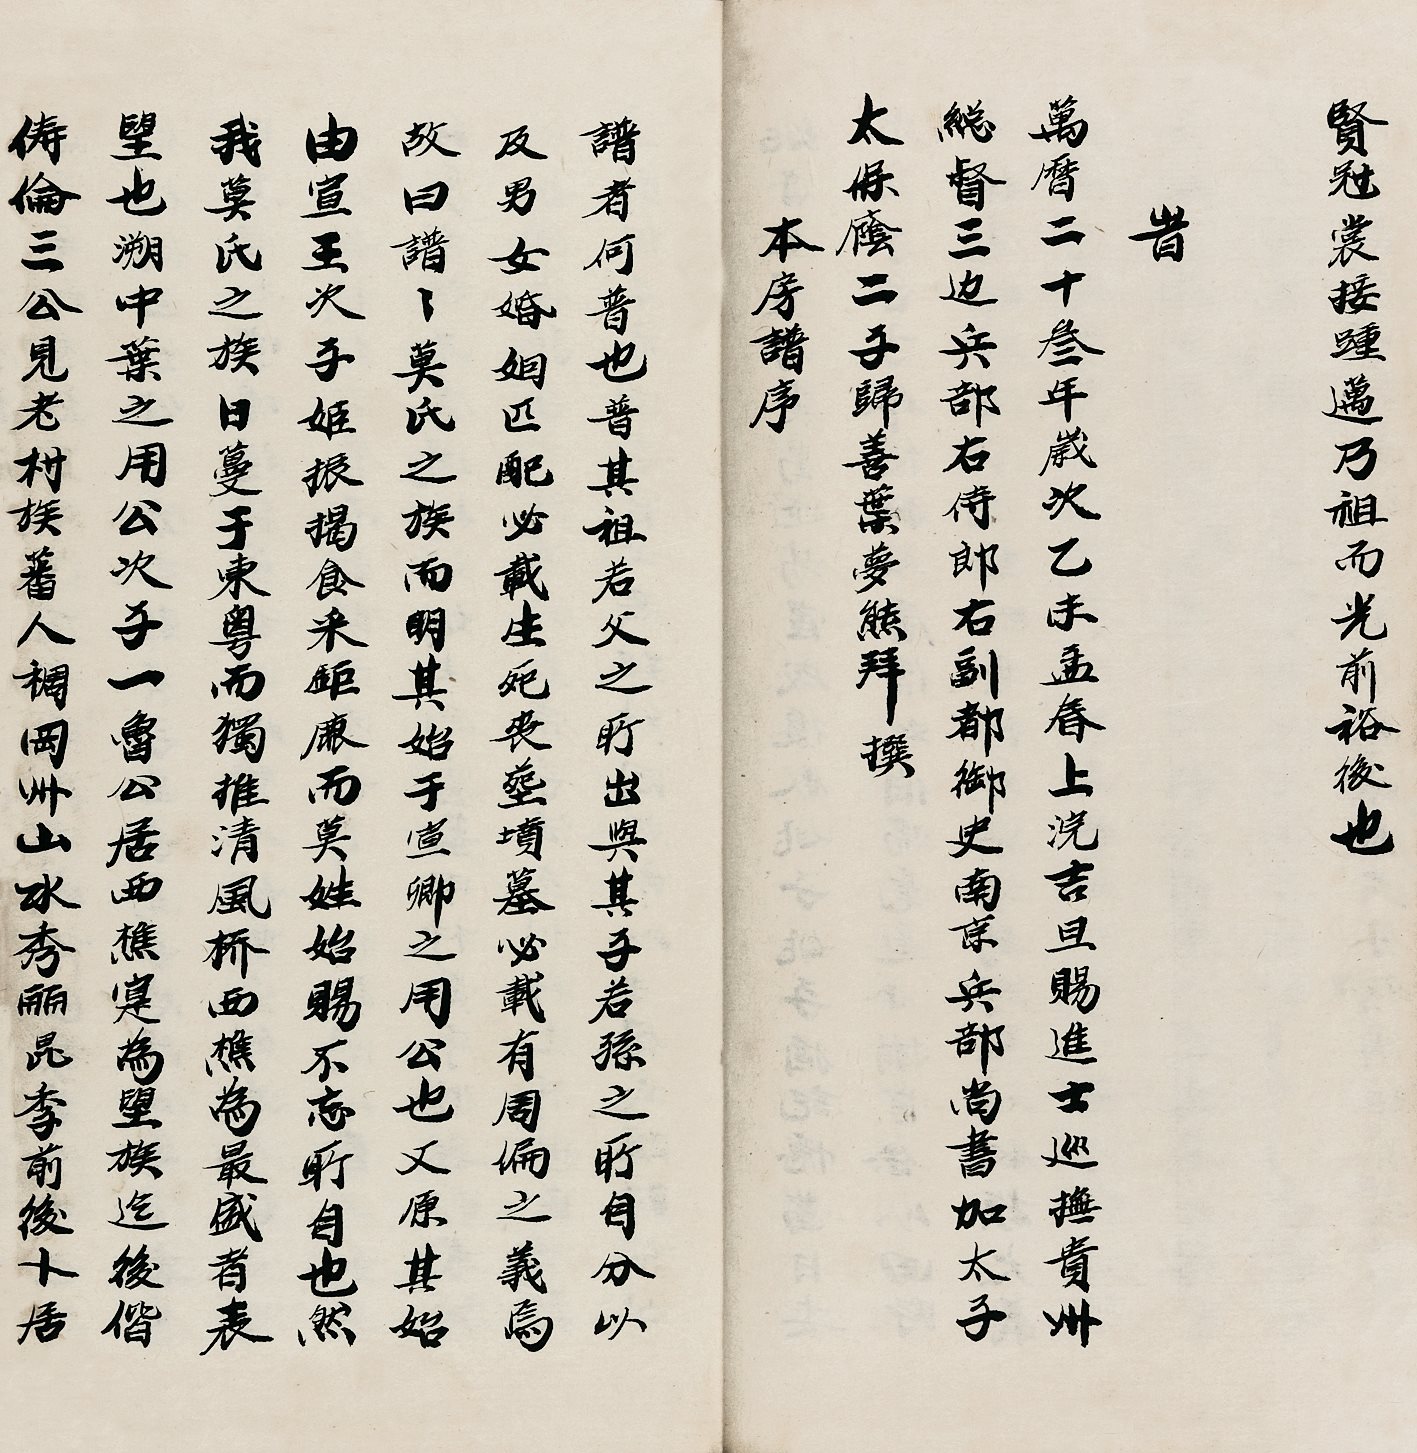 賢冠裳接踵邁乃祖而光前裕後也
旹
萬曆二十叁年歲次乙未孟春上浣吉旦賜進士巡撫貴州
総督三边兵部右侍郎右副都御史南京兵部尚書加太子
太保廕二子歸善葉夢熊拜撰
本房譜序
譜者何普也普其祖若父之所出與其子若孫之所自分以
及男女婚姻匹配必載生死丧塟墳墓必載有周偏之義焉
故曰譜〻莫氏之族而明其始于宣卿之用公也又原其始
由宣王次子姬振揭食采鉅鹿而莫姓始賜不忘所自也然
我莫氏之族日蔓于東粤而獨推清風桥西樵為最盛者表
望也溯中葉之用公次子一魯公居西樵寔為望族迄後偕
俦倫三公見老村族蕃人稠岡州山水秀丽昆季前後卜居